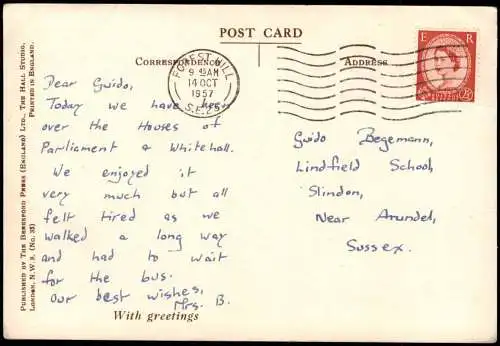 POST CARD
Correspondence
Address
FOREST HILL
9-15AM
14 OCT
1957
S.E.23
E R
Dear Guido,
Today we have been
over the Houses of
Parliament & Whitehall.
We enjoyed it
very much but all
felt tired as we
walked a long way
and had to wait
for the bus.
Our best wishes,
Mrs. B.
With greetings
Guido Begemann,
Lindfield School,
Slindon,
Near Arundel,
Sussex.
Published by The Beresford Press (England) Ltd., The Hall Studio,
London, N.W.8. (No. 33) Printed in England.